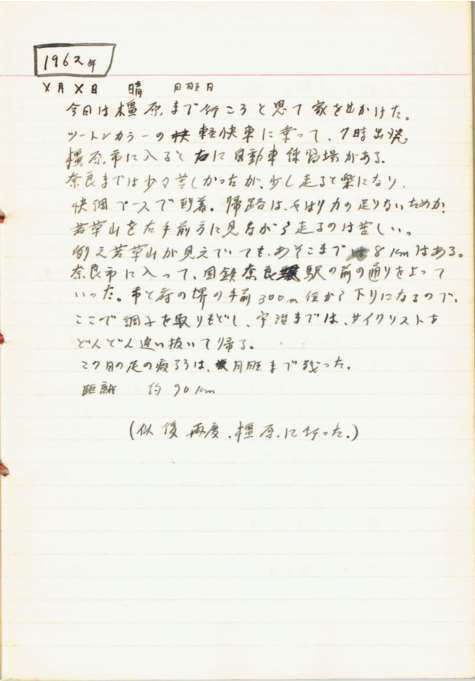 1962年
X月X日 晴 月旺日
今日は橿原まで行こうと思て家を出かけた。
ツートンカラーの快軽快車に乗って、7時出発
橿原市に入ると右に自動車練習場がある。
奈良までは少々苦しかったが、少し走ると楽になり
快調ペースで到着。帰路は、やはり力の足りないためか、
若草山を左手前方に見ながら走るのは苦しい。
例え若草山が見えていても、あそこまで 8kmはある。
奈良市に入って、国鉄奈良駅の前の通りをよって
いった。市と奈の堺の手前300m位から下りになるので、
ここで調子を取りもどし、宇治までは、サイクリストを
どんどん追い抜いて帰る。
この日の足の疲ろうは、月旺まで残った。
距離 約90km
(似後再度、橿原に行った。)